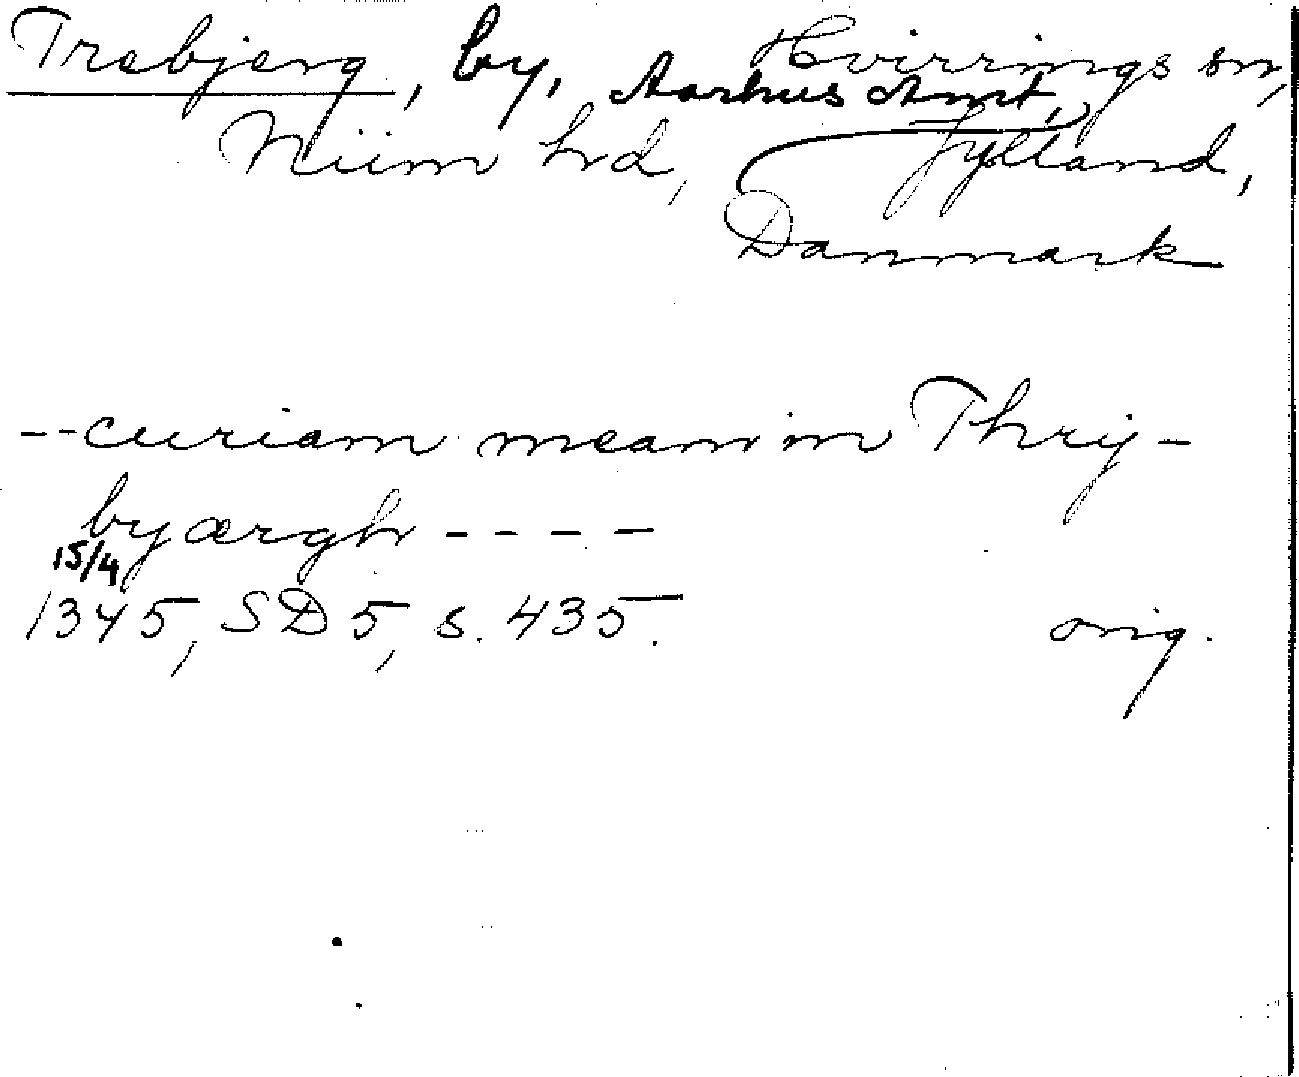 Trebjerg, by, Hvirrings sn,
Aarhus Amt,
Niim hrd, Jylland,
Danmark
--curiam meam in Thrij-
byærgh ----
15/4
1345, SD 5, s. 435. orig.